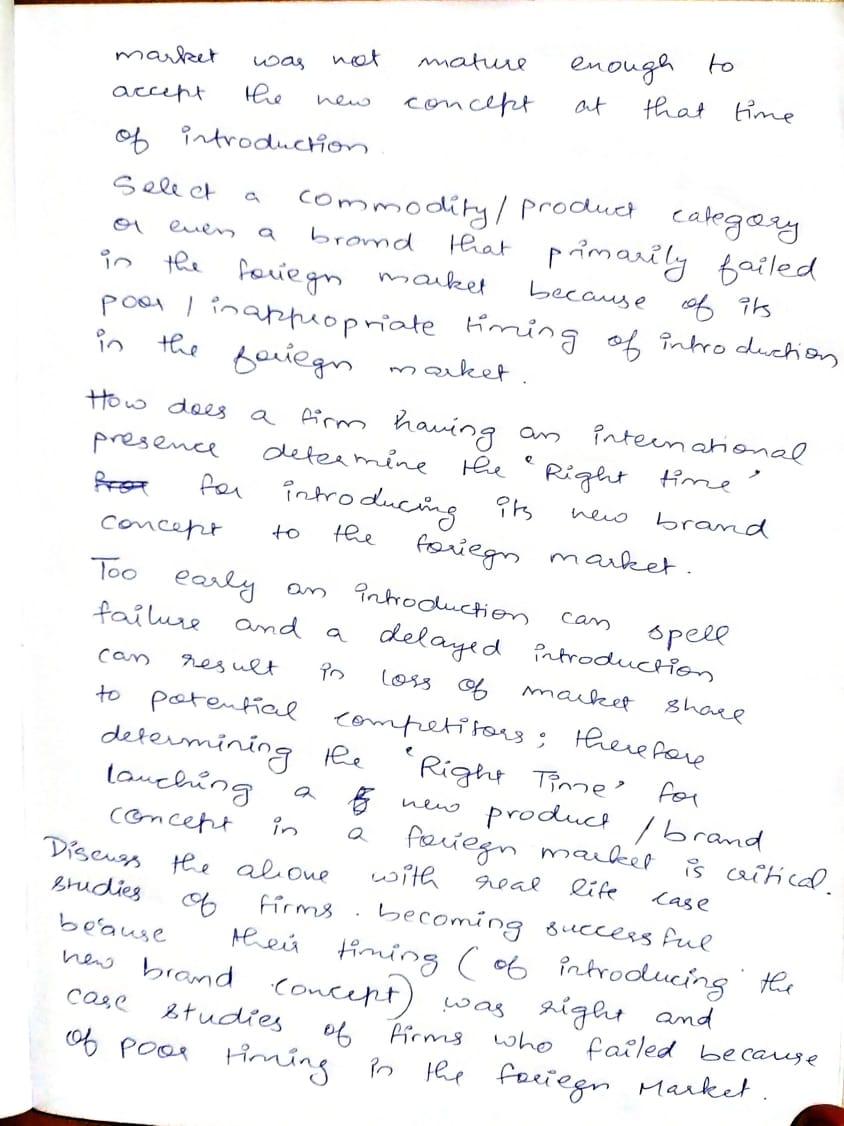 market was not mature enough to
accept the new concept at that time
of introduction
Select a commodity/product category
or even a brand that primarily failed
in the foriegn market because of its
poor / inappropriate timing of introduction
in the foriegn market.
How does a firm having an international
presence determine the 'Right time'
for introducing its new brand
concept to the foriegn market.
Too early an introduction can spell
failure and a delayed introduction
can result in loss of market share
to potential competitors; therefore
determining the 'Right Time' for
lauching a new product / brand
concept in a foriegn market is critical.
Discuss the above with real life case
studies of firms. becoming successful
because their timing (of introducing the
new brand concept) was right and
case studies of firms who failed because
of poor timing in the foriegn Market.